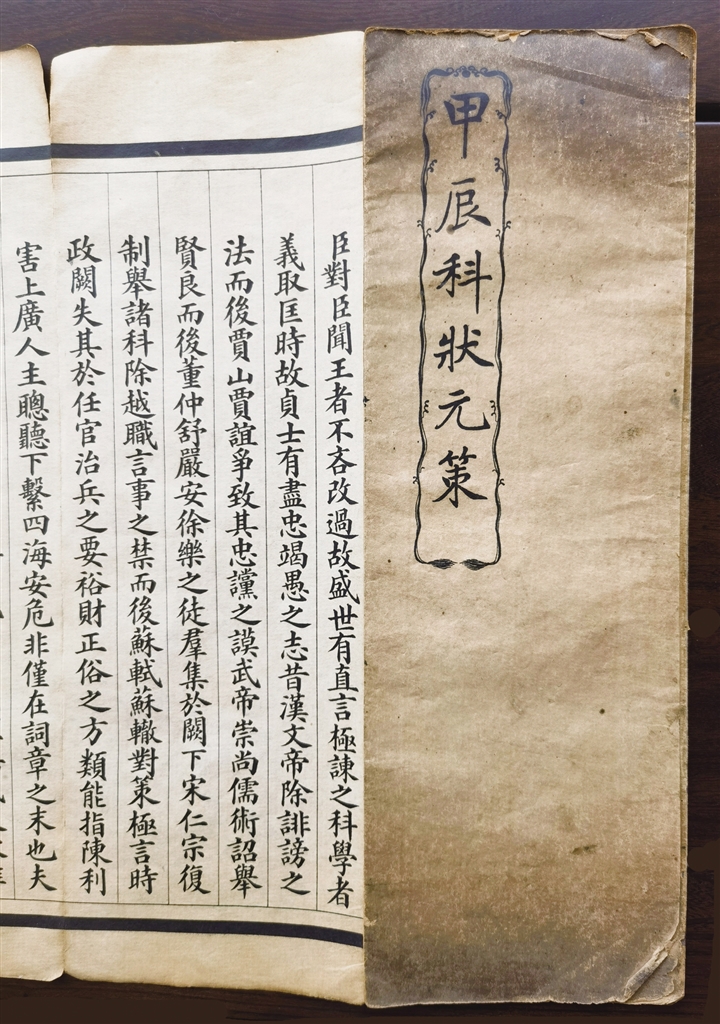 甲辰科狀元策
臣對臣聞王者不吝改過故盛世有直言極諫之科學者
義取匡時故貞士有盡忠竭愚之志昔漢文帝除誹謗之
法而後賈山賈誼爭致其忠讜之謨武帝崇尚儒術詔舉
賢良而後董仲舒嚴安徐樂之徒羣集於闕下宋仁宗復
制舉諸科除越職言事之禁而後蘇軾蘇轍對策極言時
政闕失其於任官治兵之要裕財正俗之方類能指陳利
害上廣人主聰聽下繫四海安危非僅在詞章之末也夫